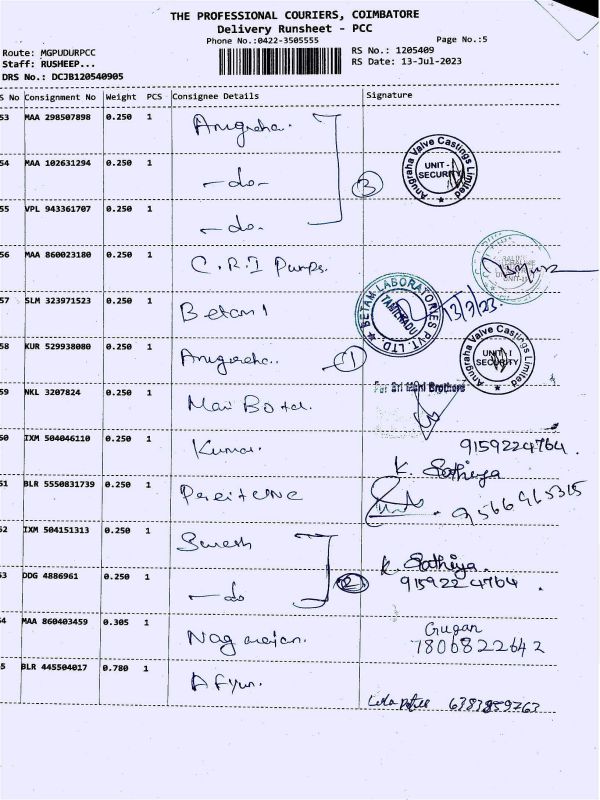 THE PROFESSIONAL COURIERS, COIMBATORE
Delivery Runsheet - PCC
Phone No.:0422-3505555
Page No.:5
Route: MGPUDURPCC
RS No.: 1205409
Staff: RUSHEEP...
RS Date: 13-Jul-2023
DRS No.: DCJB120540905
S No Consignment No Weight PCS Consignee Details Signature
53 MAA 298507898 0.250 1 Anugraha.
54 MAA 102631294 0.250 1 -do-
3
Anugraha Valve Castings Limited UNIT - I SECURITY
55 VPL 943361707 0.250 1 -do-
56 MAA 860023180 0.250 1 C.R.I Pumps.
57 SLM 323971523 0.250 1 Betam 1
BETAM LABORATORIES PVT. LTD. TAMILNADU
13/7/23
58 KUR 529938080 0.250 1 Anugraha.. 1
Anugraha Valve Castings Limited UNIT - I SECURITY
59 NKL 3207824 0.250 1
For Sri Mani Brothers
60 IXM 504046110 0.250 1 Kumar.
9159224764.
K. Sathiya
51 BLR 5550831739 0.250 1
9566965315
52 IXM 504151313 0.250 1 Suresh
2
K. Sathiya.
53 DDG 4886961 0.250 1 -do
9159224764.
54 MAA 860403459 0.305 1 Nagarajan.
Gugan
7806822642
5 BLR 445504017 0.780 1
6383859263